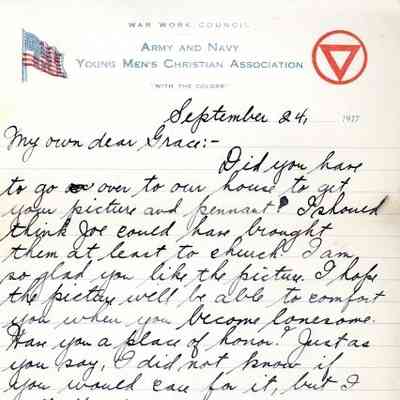 WAR WORK COUNCIL
ARMY AND NAVY
YOUNG MEN'S CHRISTIAN ASSOCIATION
"WITH THE COLORS"
September 24, 1917
My own dear Grace:-
Did you have
to go over to our house to get
your picture and pennant? I should
think Joe could have brought
them at least to church. I am
so glad you like the picture. I hope
the picture will be able to comfort
you when you become lonesome.
Have you a place of honor? Just as
you say, I did not know if
you would care for it, but I